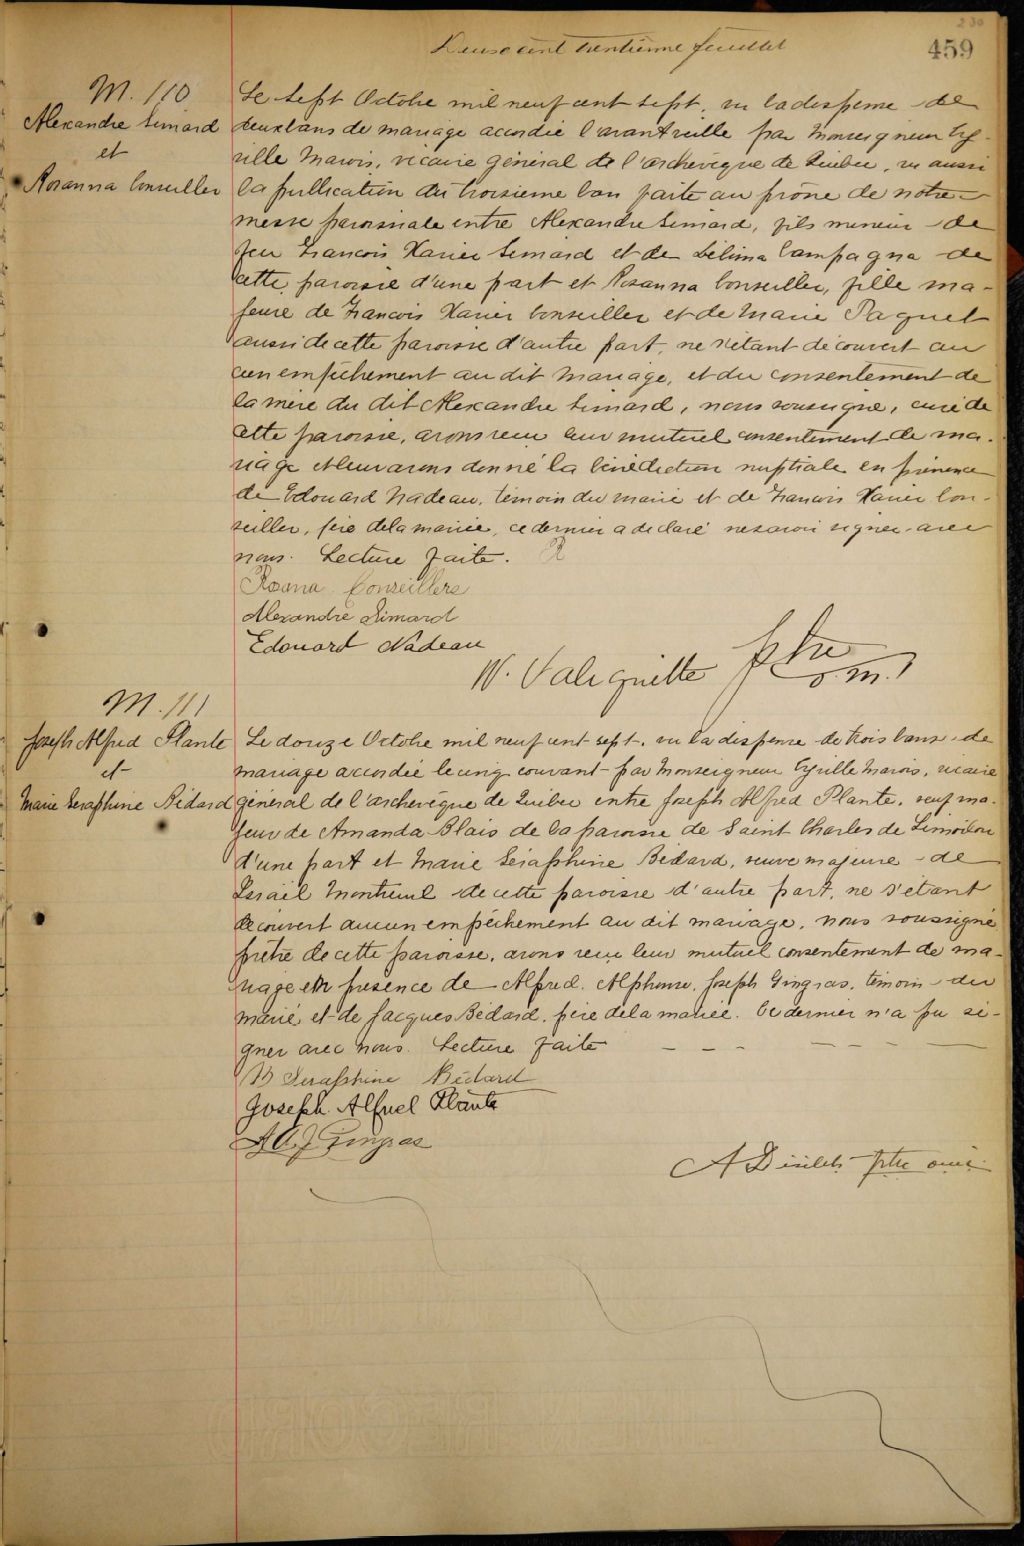 230
Deux cent trentième feuillet
459
M. 110
Alexandre Simard
et
Rosanna Conseiller
Le sept Octobre mil neuf cent sept, vu la dispense de
deux bans de mariage accordée l'avant veille par Monseigneur Cy-
rille Marois, vicaire général de l'archevêque de Québec, vu aussi
la publication du troisième ban faite au prône de notre
messe paroissiale entre Alexandre Simard, fils mineur de
feu François Xavier Simard et de Délima Campagna de
cette paroisse d'une part et Rosanna Conseiller, fille ma-
jeure de François Xavier Conseiller et de Marie Paquet
aussi de cette paroisse d'autre part, ne s'étant découvert au
cun empêchement au dit mariage, et du consentement de
la mère du dit Alexandre Simard, nous soussigné, curé de
cette paroisse, avons reçu leur mutuel consentement de ma-
riage et leur avons donné la bénédiction nuptiale en présence
de Edouard Nadeau, témoin du marié et de François Xavier Con-
seiller, père de la mariée, ce dernier a déclaré ne savoir signer avec
nous. Lecture faite. R
Rosana Conseillers
Alexandre Simard
Edouard Nadeau
W. Valiquette ptre o.m.i
M. 111
Joseph Alfred Plante
et
Marie Seraphine Bédard
Le douze Octobre mil neuf cent sept, vu la dispense de trois bans de
mariage accordée le cinq courant par Monseigneur Cyrille Marois, vicaire
général de l'archevêque de Québec entre Joseph Alfred Plante, veuf ma-
jeur de Amanda Blais de la paroisse de Saint Charles de Limoilou
d'une part et Marie Séraphine Bédard, veuve majeure de
Israël Montreuil de cette paroisse d'autre part, ne s'étant
découvert aucun empêchement au dit mariage, nous soussigné
prêtre de cette paroisse, avons reçu leur mutuel consentement de ma-
riage en présence de Alfred Alphonse Joseph Gingras, témoin du
marié et de Jacques Bédard, père de la mariée. Ce dernier n'a pu si-
gner avec nous. Lecture faite
M Seraphine Bédard
Joseph Alfred Plante
A A J Gingras
A Désilets ptre omi